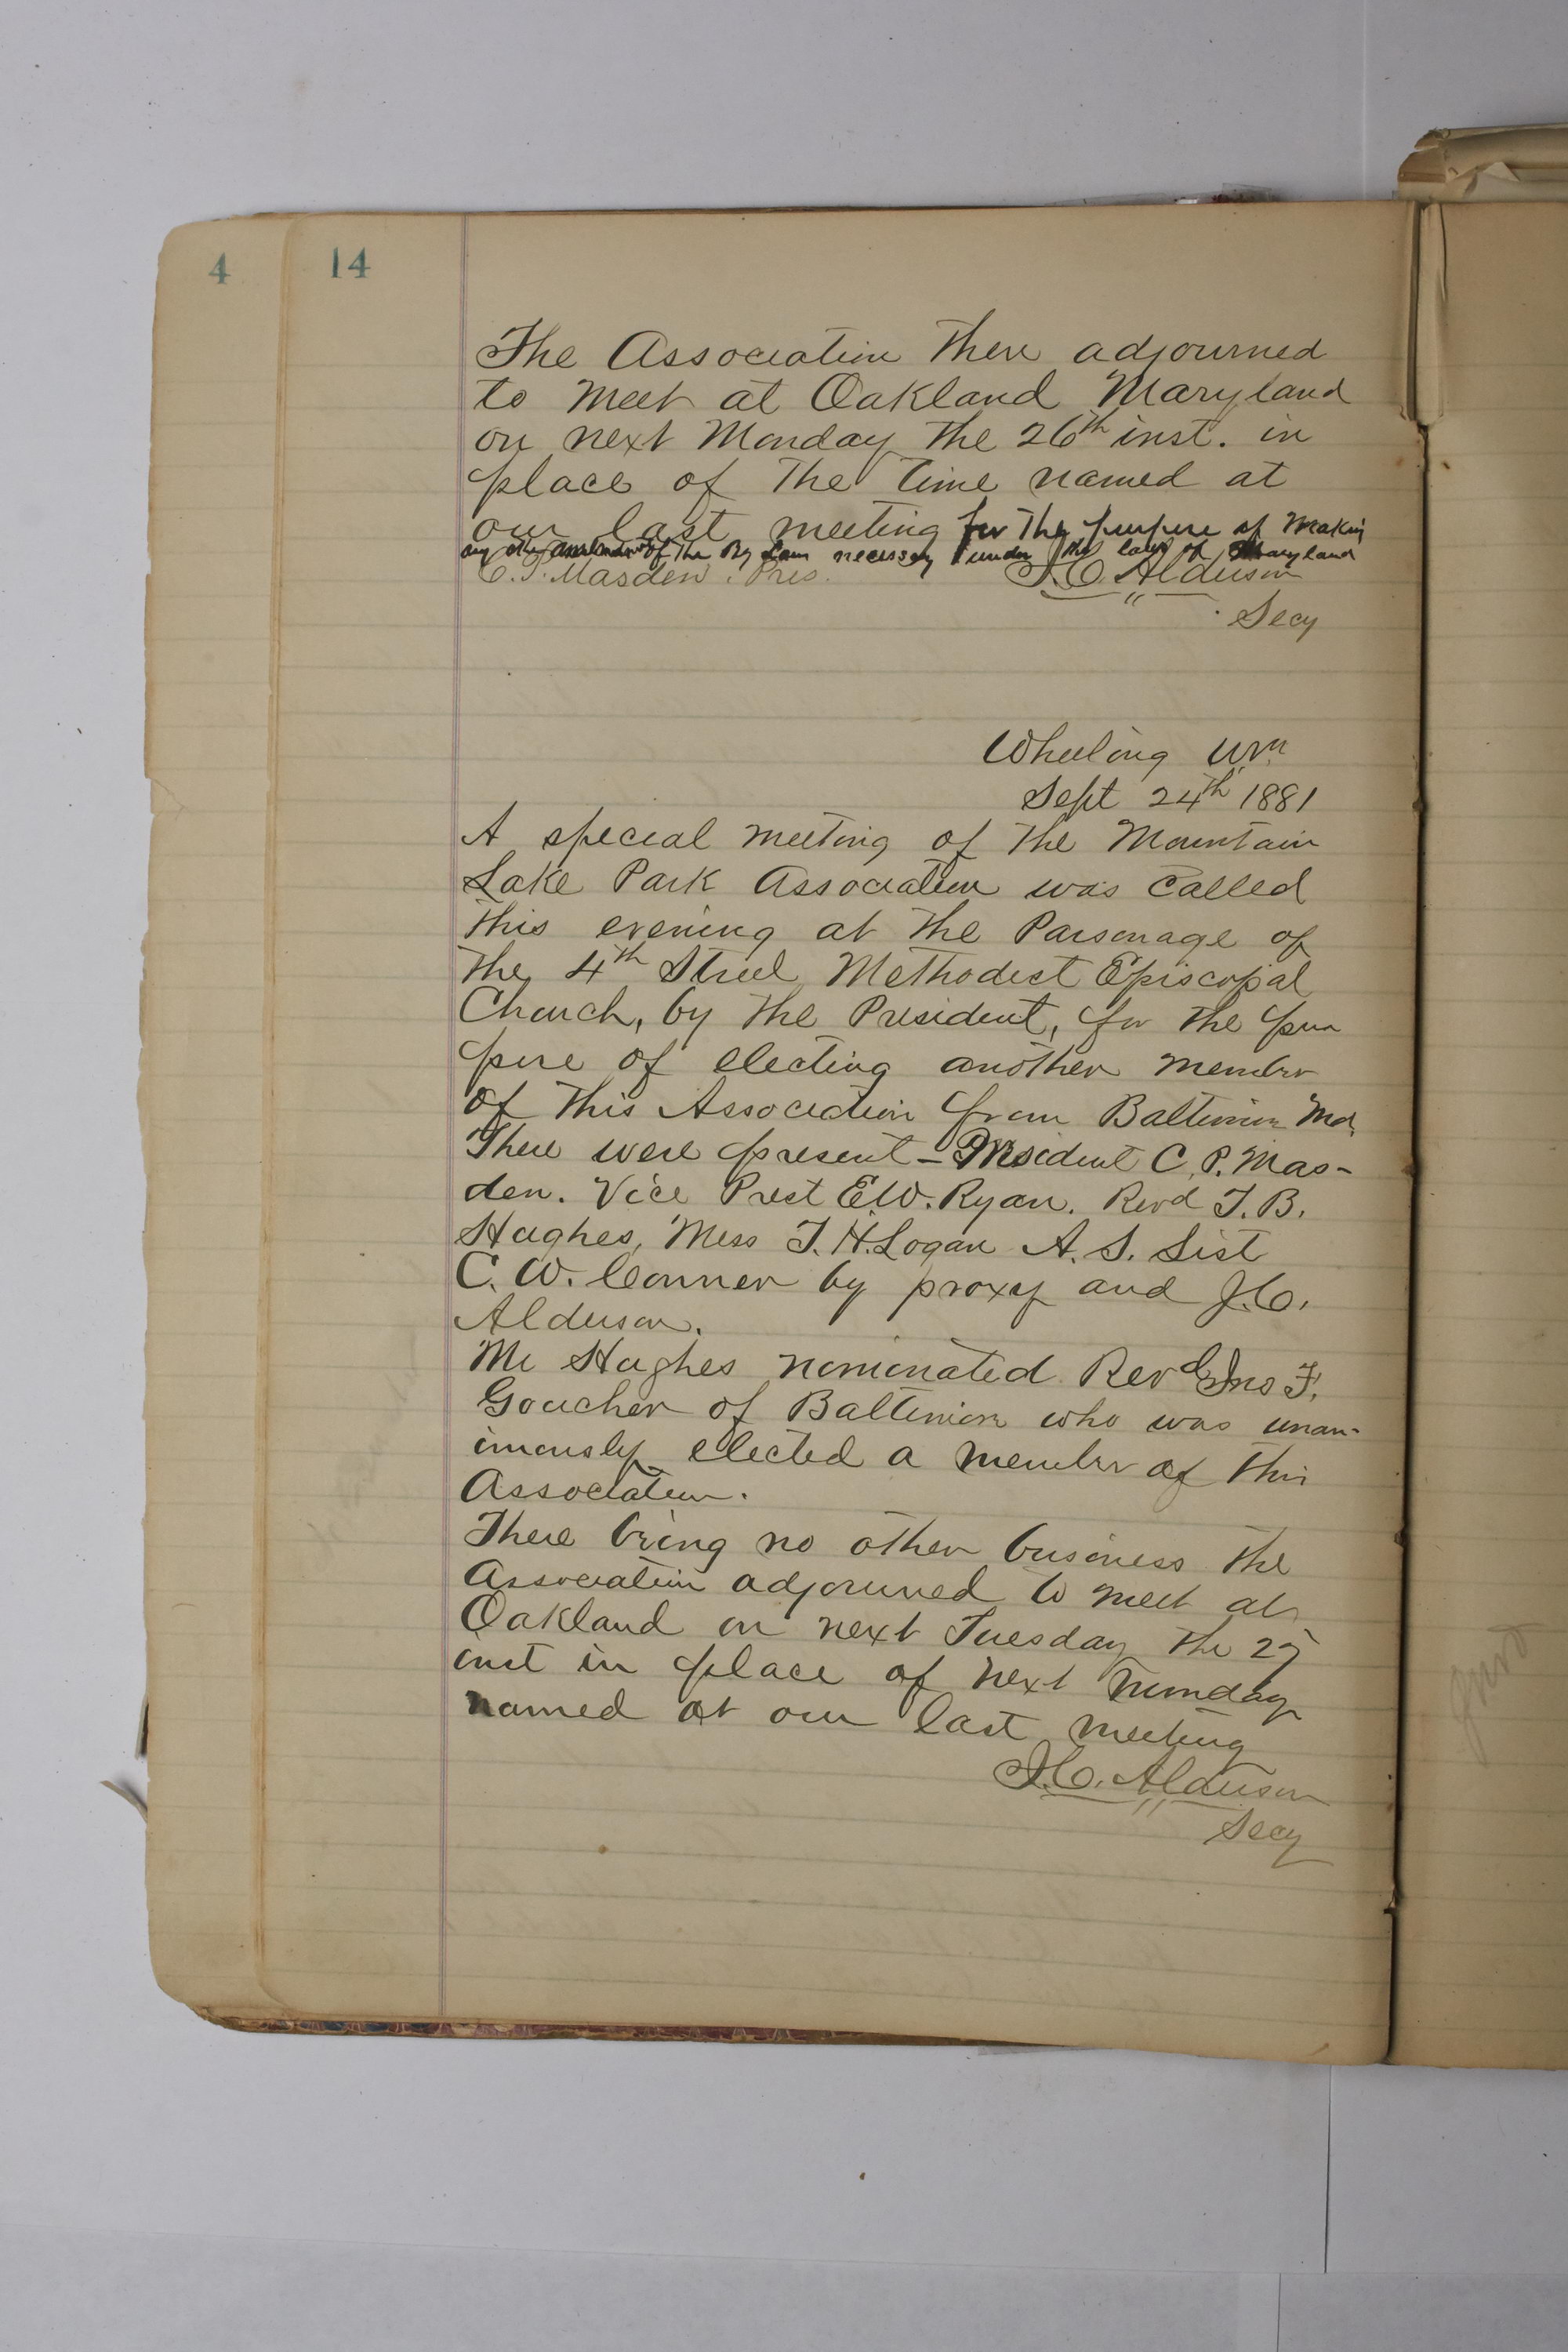 4
14
The Association then adjourned
to meet at Oakland Maryland
on next Monday the 26th inst. in
place of the time named at
our last meeting for the purpose of making
any other amendments of the By Laws necessary under the laws of Maryland
C. P. Masden. Pres.
J. C. Alderson
Secy
Wheeling W Va
Sept 24th 1881
A special meeting of the Mountain
Lake Park Association was called
this evening at the Parsonage of
the 4th Street Methodist Episcopal
Church, by the President, for the pur
pose of electing another member
of this Association from Baltimore Md.
There were present - President C. P. Mas-
den. Vice Prest E. W. Ryan. Revd T. B.
Hughes, Mess T. H. Logan A. S. List
C. W. Conner by proxy and J. C.
Alderson.
Mr Hughes nominated Revd Jno F.
Goucher of Baltimore who was unan-
imously elected a member of this
Association.
There being no other business the
Association adjourned to meet at
Oakland on next Tuesday the 27
inst in place of next Monday
named at our last meeting
J. C. Alderson
Secy